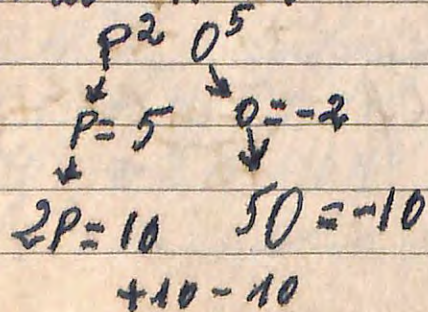 P² O⁵
P=5 O=-2
2P=10 5O=-10
+10-10